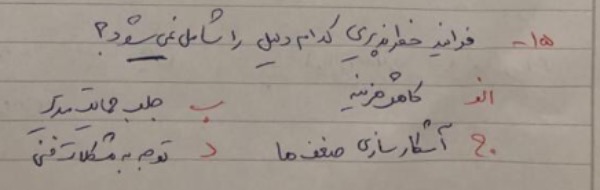 ۱۵- فرایند خطرپذیری کدام دلیل را شامل نمی شود؟
الف کاهش هزینه ب جلب حمایت مدیر
ج آشکارسازی ضعف ها د توجه به مشکلات فنی